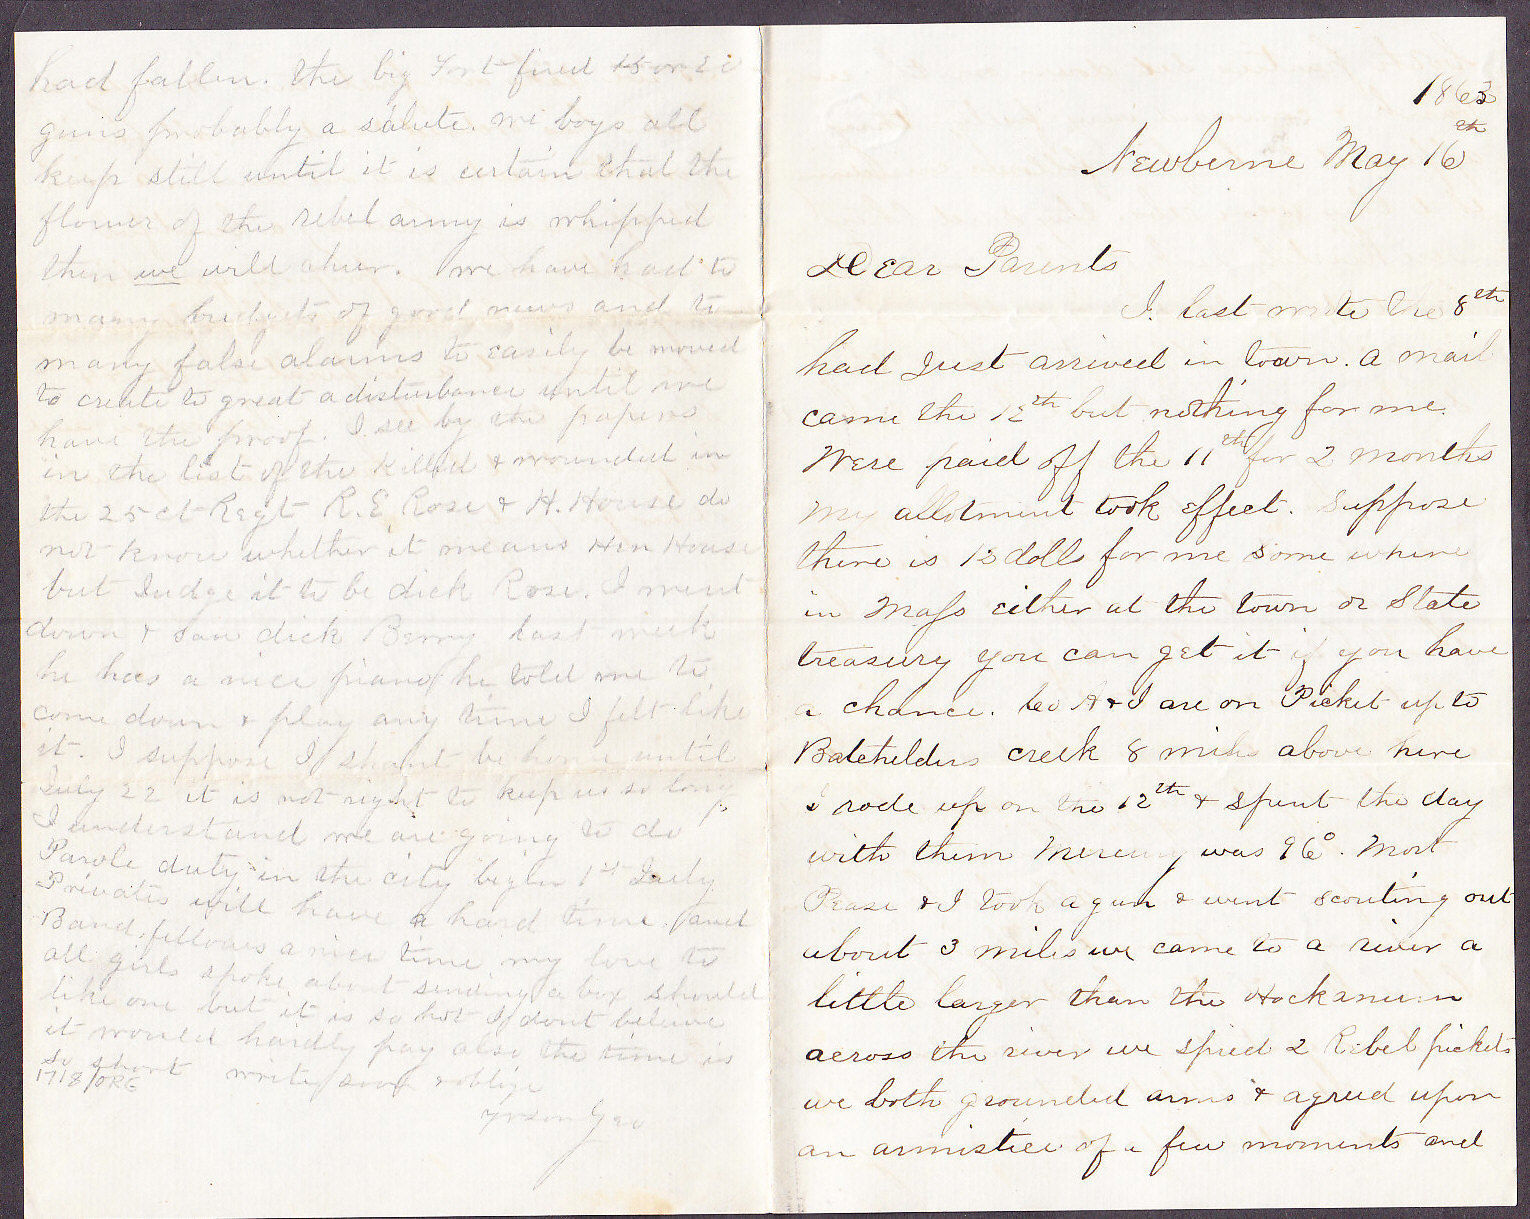 had fallen. the big Fort fired 15 or 20
guns probably a salute. we boys all
keep still until it is certain that the
flower of the rebel army is whipped
then we will cheer. We have had to
many budgets of good news and to
many false alarms to easily be moved
to create to great a disturbance until we
have the proof. I see by the papers
in the list of the killed & wounded in
the 25 ct Regt R.E. Rose & H. House do
not know whether it means Hen House
but Judge it to be dick Rose. I went
down & saw dick Berry last week
he has a nice piano he told me to
come down & play any time I felt like
it. I suppose I shant be home until
July 22 it is not right to keep us so long
I understand we are going to do
Parole duty in the city begin 1st July
Privates will have a hard time. and
Band fellows a nice time. my love to
all girls spoke about sending a box should
like one but it is so hot I dont believe
it would hardly pay also the time is
so short write soon & oblige
1718/ORG
Yr son Geo
1863
Newberne May 16th
Dear Parents
I last wrote the 8th
had Just arrived in town. a mail
came the 12th but nothing for me.
Were paid off the 11th for 2 months
My allotment took effect. Suppose
there is 12 dolls for me some where
in Mass either at the town or State
treasury you can get it if you have
a chance. Co A & I are on Picket up to
Batchelders creek 8 miles above here
I rode up on the 12th & spent the day
with them Mercury was 96°. Mort
Pease & I took a gun & went scouting out
about 3 miles we came to a river a
little larger than the Hockanum
across the river we spied 2 Rebel pickets
we both grounded arms & agreed upon
an armistice of a few moments and